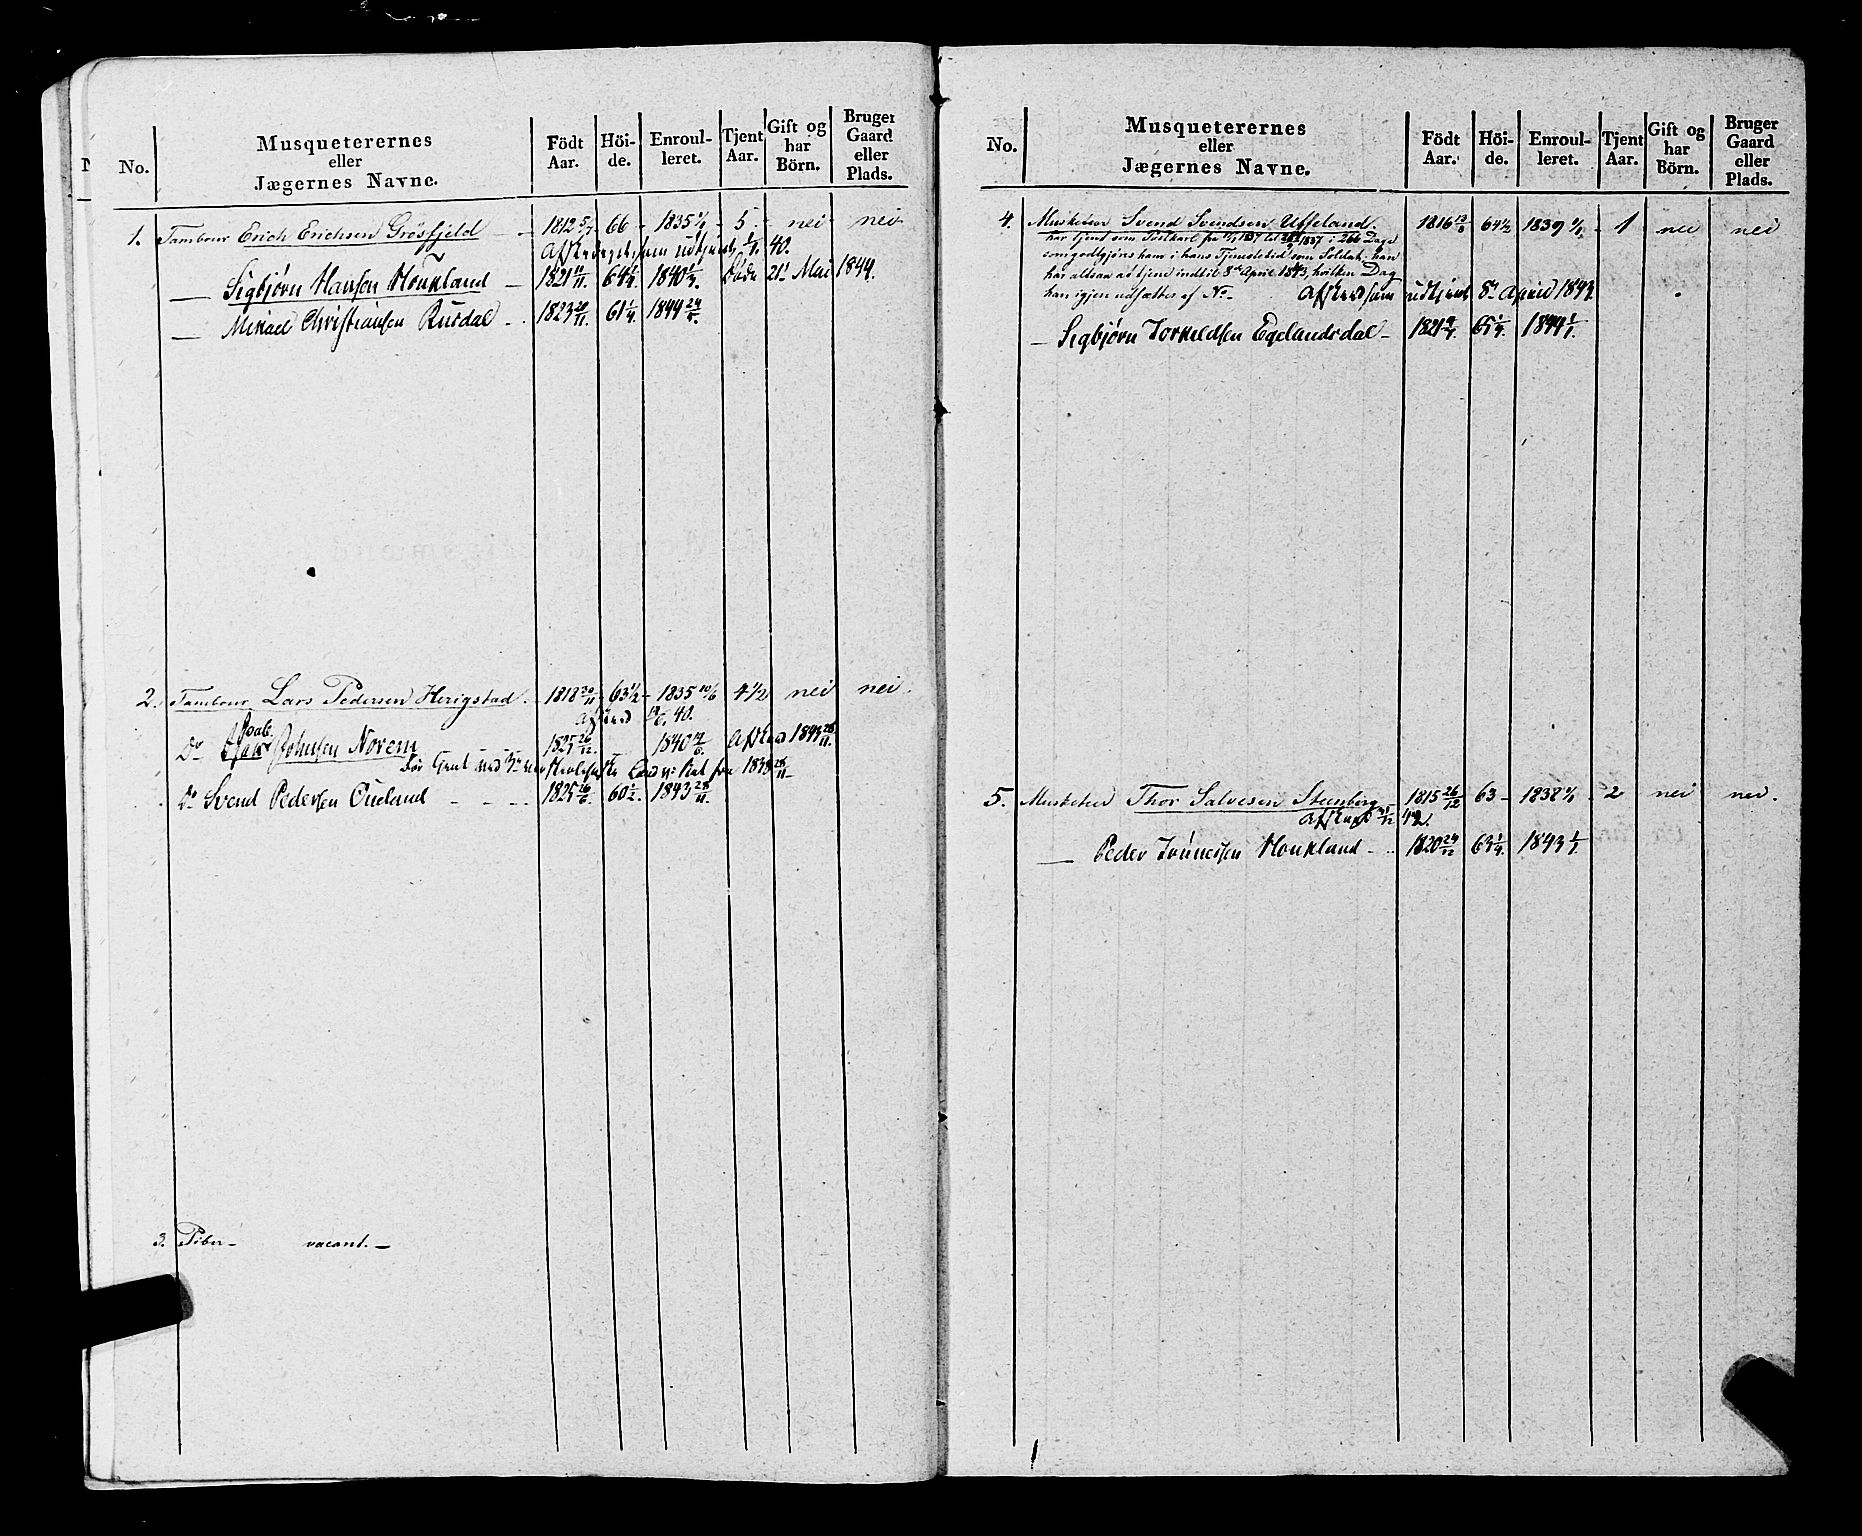 No. Musqueterernes eller Jægernes Navne. Födt Aar. Höi-de. Enroul-leret. Tjent Aar. Gift og har Börn. Bruger Gaard eller Plads.
1. Tambour Erich Erichsen Grösfjeld - 1812 5/7 66 - 1835 1/1 - 5 - nei nei
Afskediget som udtjent 1/1 40.
— Sigbjørn Hansen Houkland — 1821 11/11. 64 1/4. 1840 1/1. Døde 21de Mai 1844.
— Mikael Christiansen Rusdal - 1823 20/11. 61 1/4. 1844 24/5.
2. Tambour Lars Pedersen Herigstad. 1818 20/11 63 1/2 - 1835 10/6 4 1/2 nei nei.
Afskeed 19/6. 40.
Do Johnsen Novem 1825 26/12. 1840 19/6. Afskeed 1843 28/11.
1838 28/11 —
Do Svend Pedersen Øueland - - - 1825 16/6. 60 1/2. 1843 28/11.
3. Piber — vacant. —
No. Musqueterernes eller Jægernes Navne. Födt Aar. Höi-de. Enroul-leret. Tjent Aar. Gift og har Börn. Bruger Gaard eller Plads.
4. Musketeer Svend Svendsen Uffeland. 1816 13/6 64 1/2 1839 1/1 - 1 nei nei
har tjent som Postkarl fra 1837 til 1837 i 266 Dage
som godtgjøres ham i hans Tjenestetid som Soldat; han
har altsaa at tjene indtil 8de April 1843, hvilken Dag
han igjen udsættes af No — Afskeed som udtjent 8de April 1843.
— Sigbjørn Torkildsen Egelandsdal — 1821 4/7. 65 1/4. 1844 1/1.
5. Musketeer Thor Salvesen Steenberg 1815 26/12 63 - 1838 1/1 - 2 nei nei.
Afskeed 31/12 42.
— Peder Tønnessen Houkland - 1820 24/12 63 1/4. 1843 1/1.